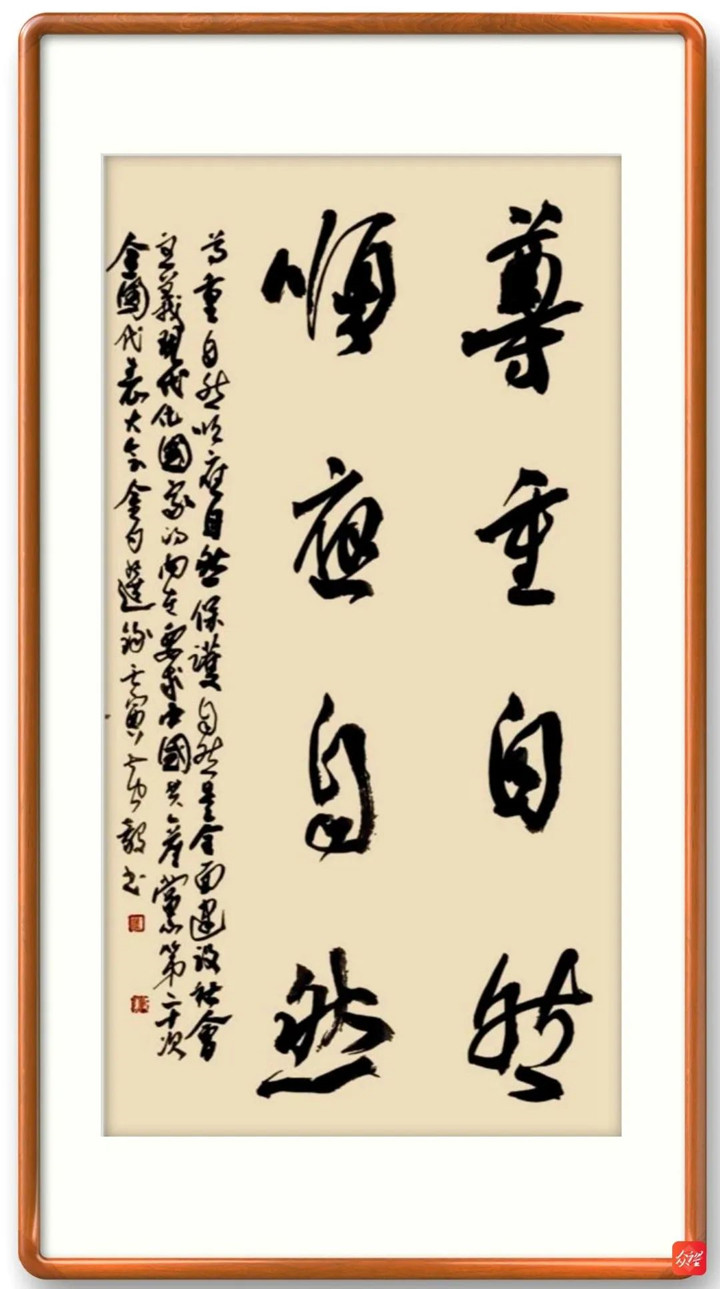 尊重自然
順應自然
尊重自然順應自然保護自然是全面建设社會
主義現代化國家的内在要求中國共產黨第二十次
全國代表大会金句選錄壬寅 毅书
众视